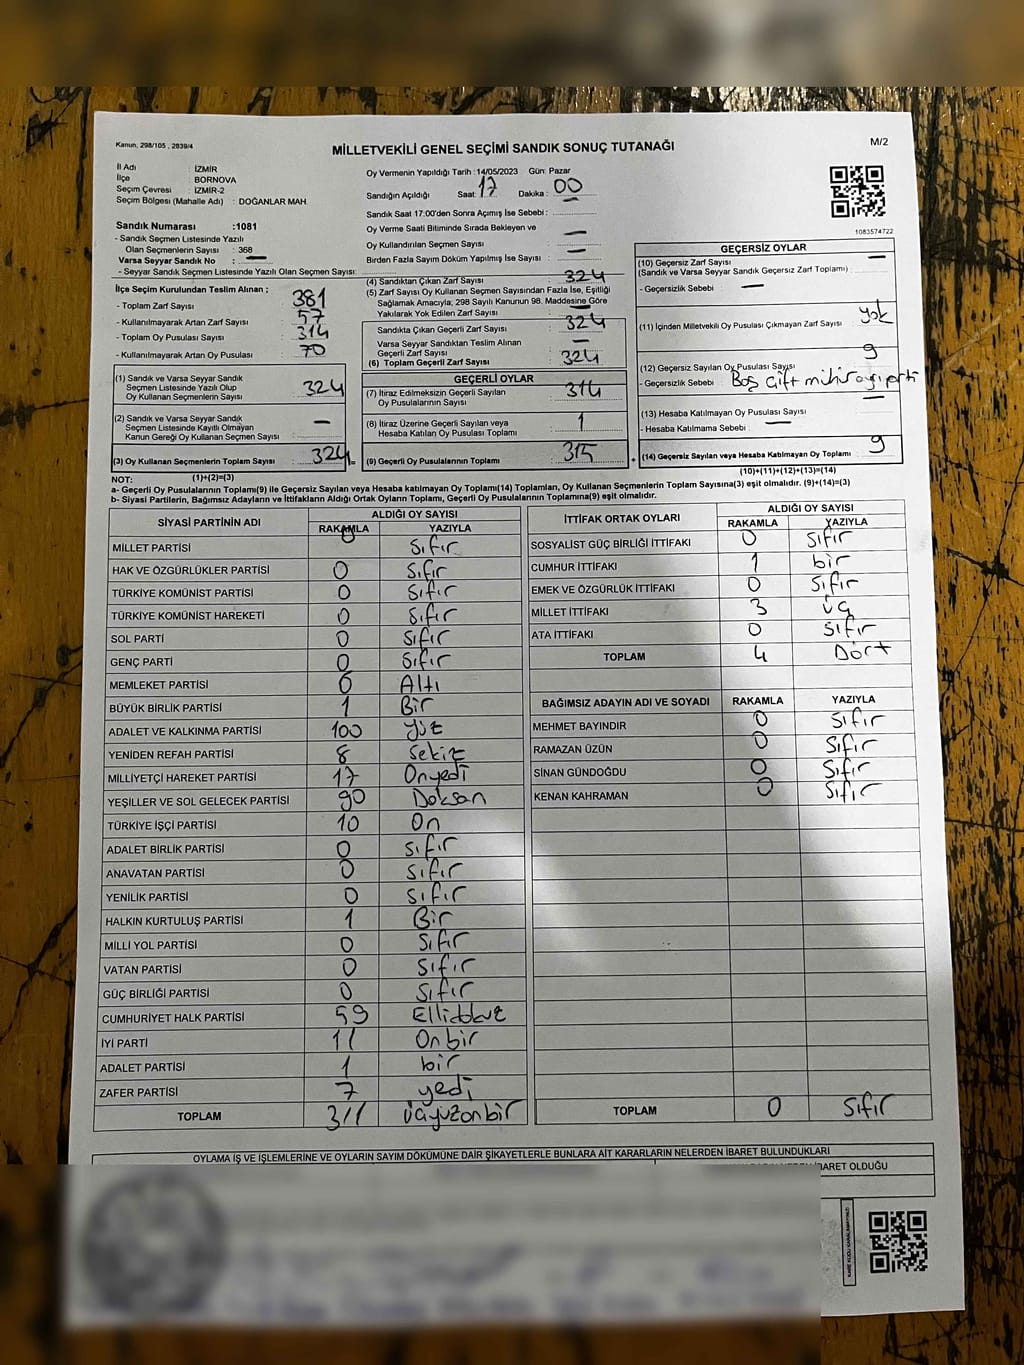 Kanun, 298/105 , 2839/4
MİLLETVEKİLİ GENEL SEÇİMİ SANDIK SONUÇ TUTANAĞI
M/2
İl Adı : İZMİR
İlçe : BORNOVA
Seçim Çevresi : İZMİR-2
Seçim Bölgesi (Mahalle Adı) : DOĞANLAR MAH.
Oy Vermenin Yapıldığı Tarih : 14/05/2023 Gün: Pazar
Sandığın Açıldığı Saat: 17 Dakika : 00
Sandık Saat 17:00'den Sonra Açımış İse Sebebi :
Oy Verme Saati Bitiminde Sırada Bekleyen ve
Oy Kullandırılan Seçmen Sayısı : —
Birden Fazla Sayım Döküm Yapılmış İse Sayısı : —
1083574722
Sandık Numarası :1081
- Sandık Seçmen Listesinde Yazılı
Olan Seçmenlerin Sayısı : 368
Varsa Seyyar Sandık No : —
- Seyyar Sandık Seçmen Listesinde Yazılı Olan Seçmen Sayısı:
İlçe Seçim Kurulundan Teslim Alınan ;
- Toplam Zarf Sayısı : 381
- Kullanılmayarak Artan Zarf Sayısı : 57
- Toplam Oy Pusulası Sayısı : 314
- Kullanılmayarak Artan Oy Pusulası : 70
(1) Sandık ve Varsa Seyyar Sandık
Seçmen Listesinde Yazılı Olup
Oy Kullanan Seçmenlerin Sayısı : 324
(2) Sandık ve Varsa Seyyar Sandık
Seçmen Listesinde Kayıtlı Olmayan
Kanun Gereği Oy Kullanan Seçmen Sayısı : —
(3) Oy Kullanan Seçmenlerin Toplam Sayısı : 324
(4) Sandıktan Çıkan Zarf Sayısı : 324
(5) Zarf Sayısı Oy Kullanan Seçmen Sayısından Fazla İse, Eşitliği
Sağlamak Amacıyla; 298 Sayılı Kanunun 98. Maddesine Göre
Yakılarak Yok Edilen Zarf Sayısı : —
Sandıkta Çıkan Geçerli Zarf Sayısı : 324
Varsa Seyyar Sandıktan Teslim Alınan
Geçerli Zarf Sayısı : —
(6) Toplam Geçerli Zarf Sayısı : 324
GEÇERLİ OYLAR
(7) İtiraz Edilmeksizin Geçerli Sayılan
Oy Pusulalarının Sayısı : 314
(8) İtiraz Üzerine Geçerli Sayılan veya
Hesaba Katılan Oy Pusulası Toplamı : 1
(9) Geçerli Oy Pusulalarının Toplamı : 315
GEÇERSİZ OYLAR
(10) Geçersiz Zarf Sayısı : —
(Sandık ve Varsa Seyyar Sandık Geçersiz Zarf Toplamı)
- Geçersizlik Sebebi : —
(11) İçinden Milletvekili Oy Pusulası Çıkmayan Zarf Sayısı : yok
(12) Geçersiz Sayılan Oy Pusulası Sayısı : 9
- Geçersizlik Sebebi : Boş çift mühür
(13) Hesaba Katılmayan Oy Pusulası Sayısı : —
- Hesaba Katılmama Sebebi : —
(14) Geçersiz Sayılan veya Hesaba Katılmayan Oy Toplamı : 9
NOT: (1)+(2)=(3)
(10)+(11)+(12)+(13)=(14)
a- Geçerli Oy Pusulalarının Toplamı(9) ile Geçersiz Sayılan veya Hesaba Katılmayan Oy Toplamı(14) Toplamları, Oy Kullanan Seçmenlerin Toplam Sayısına(3) eşit olmalıdır. (9)+(14)=(3)
b- Siyasi Partilerin, Bağımsız Adayların ve İttifakların Aldığı Ortak Oyların Toplamı, Geçerli Oy Pusulalarının Toplamına(9) eşit olmalıdır.
SİYASİ PARTİNİN ADI ALDIĞI OY SAYISI
RAKAMLA YAZIYLA
MİLLET PARTİSİ 0 Sıfır
HAK VE ÖZGÜRLÜKLER PARTİSİ 0 Sıfır
TÜRKİYE KOMÜNİST PARTİSİ 0 Sıfır
TÜRKİYE KOMÜNİST HAREKETİ 0 Sıfır
SOL PARTİ 0 Sıfır
GENÇ PARTİ 0 Sıfır
MEMLEKET PARTİSİ 6 Altı
BÜYÜK BİRLİK PARTİSİ 1 Bir
ADALET VE KALKINMA PARTİSİ 100 Yüz
YENİDEN REFAH PARTİSİ 8 Sekiz
MİLLİYETÇİ HAREKET PARTİSİ 17 Onyedi
YEŞİLLER VE SOL GELECEK PARTİSİ 90 Doksan
TÜRKİYE İŞÇİ PARTİSİ 10 On
ADALET BİRLİK PARTİSİ 0 Sıfır
ANAVATAN PARTİSİ 0 Sıfır
YENİLİK PARTİSİ 0 Sıfır
HALKIN KURTULUŞ PARTİSİ 1 Bir
MİLLİ YOL PARTİSİ 0 Sıfır
VATAN PARTİSİ 0 Sıfır
GÜÇ BİRLİĞİ PARTİSİ 0 Sıfır
CUMHURİYET HALK PARTİSİ 59 Ellidokuz
İYİ PARTİ 11 Onbir
ADALET PARTİSİ 1 bir
ZAFER PARTİSİ 7 yedi
TOPLAM 311 üçyüzonbir
İTTİFAK ORTAK OYLARI ALDIĞI OY SAYISI
RAKAMLA YAZIYLA
SOSYALİST GÜÇ BİRLİĞİ İTTİFAKI 0 Sıfır
CUMHUR İTTİFAKI 1 bir
EMEK VE ÖZGÜRLÜK İTTİFAKI 0 Sıfır
MİLLET İTTİFAKI 3 üç
ATA İTTİFAKI 0 Sıfır
TOPLAM 4 Dört
BAĞIMSIZ ADAYIN ADI VE SOYADI RAKAMLA YAZIYLA
MEHMET BAYINDIR 0 Sıfır
RAMAZAN ÜZÜN 0 Sıfır
SİNAN GÜNDOĞDU 0 Sıfır
KENAN KAHRAMAN 0 Sıfır
TOPLAM 0 Sıfır
OYLAMA İŞ VE İŞLEMLERİNE VE OYLARIN SAYIM DÖKÜMÜNE DAİR ŞİKAYETLERLE BUNLARA AİT KARARLARIN NELERDEN İBARET BULUNDUKLARI
İBARET OLDUĞU